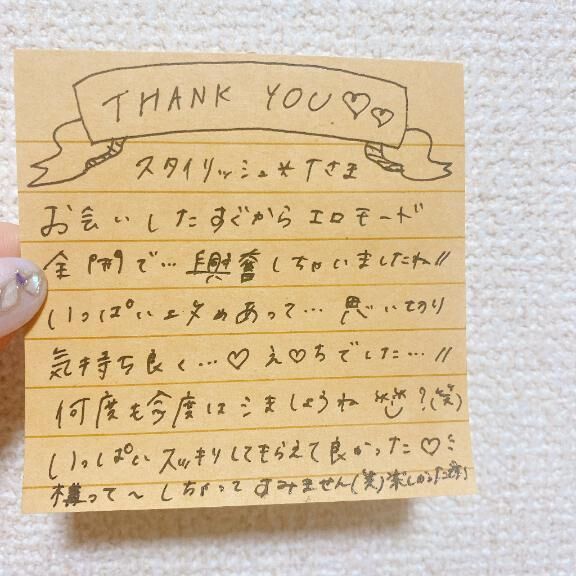 THANK YOU♡♡
スタイリッシュ*Tさま
お会いしたすぐからエロモード
全開で…興奮しちゃいましたね!!
いっぱい攻めあって…思いっ切り
気持ち良く…♡え♡ちでした…!!
何度も今度はシましょうね ?(笑)
いっぱいスッキリしてもらえて良かった♡
構って〜しちゃってすみません(笑)楽しかった